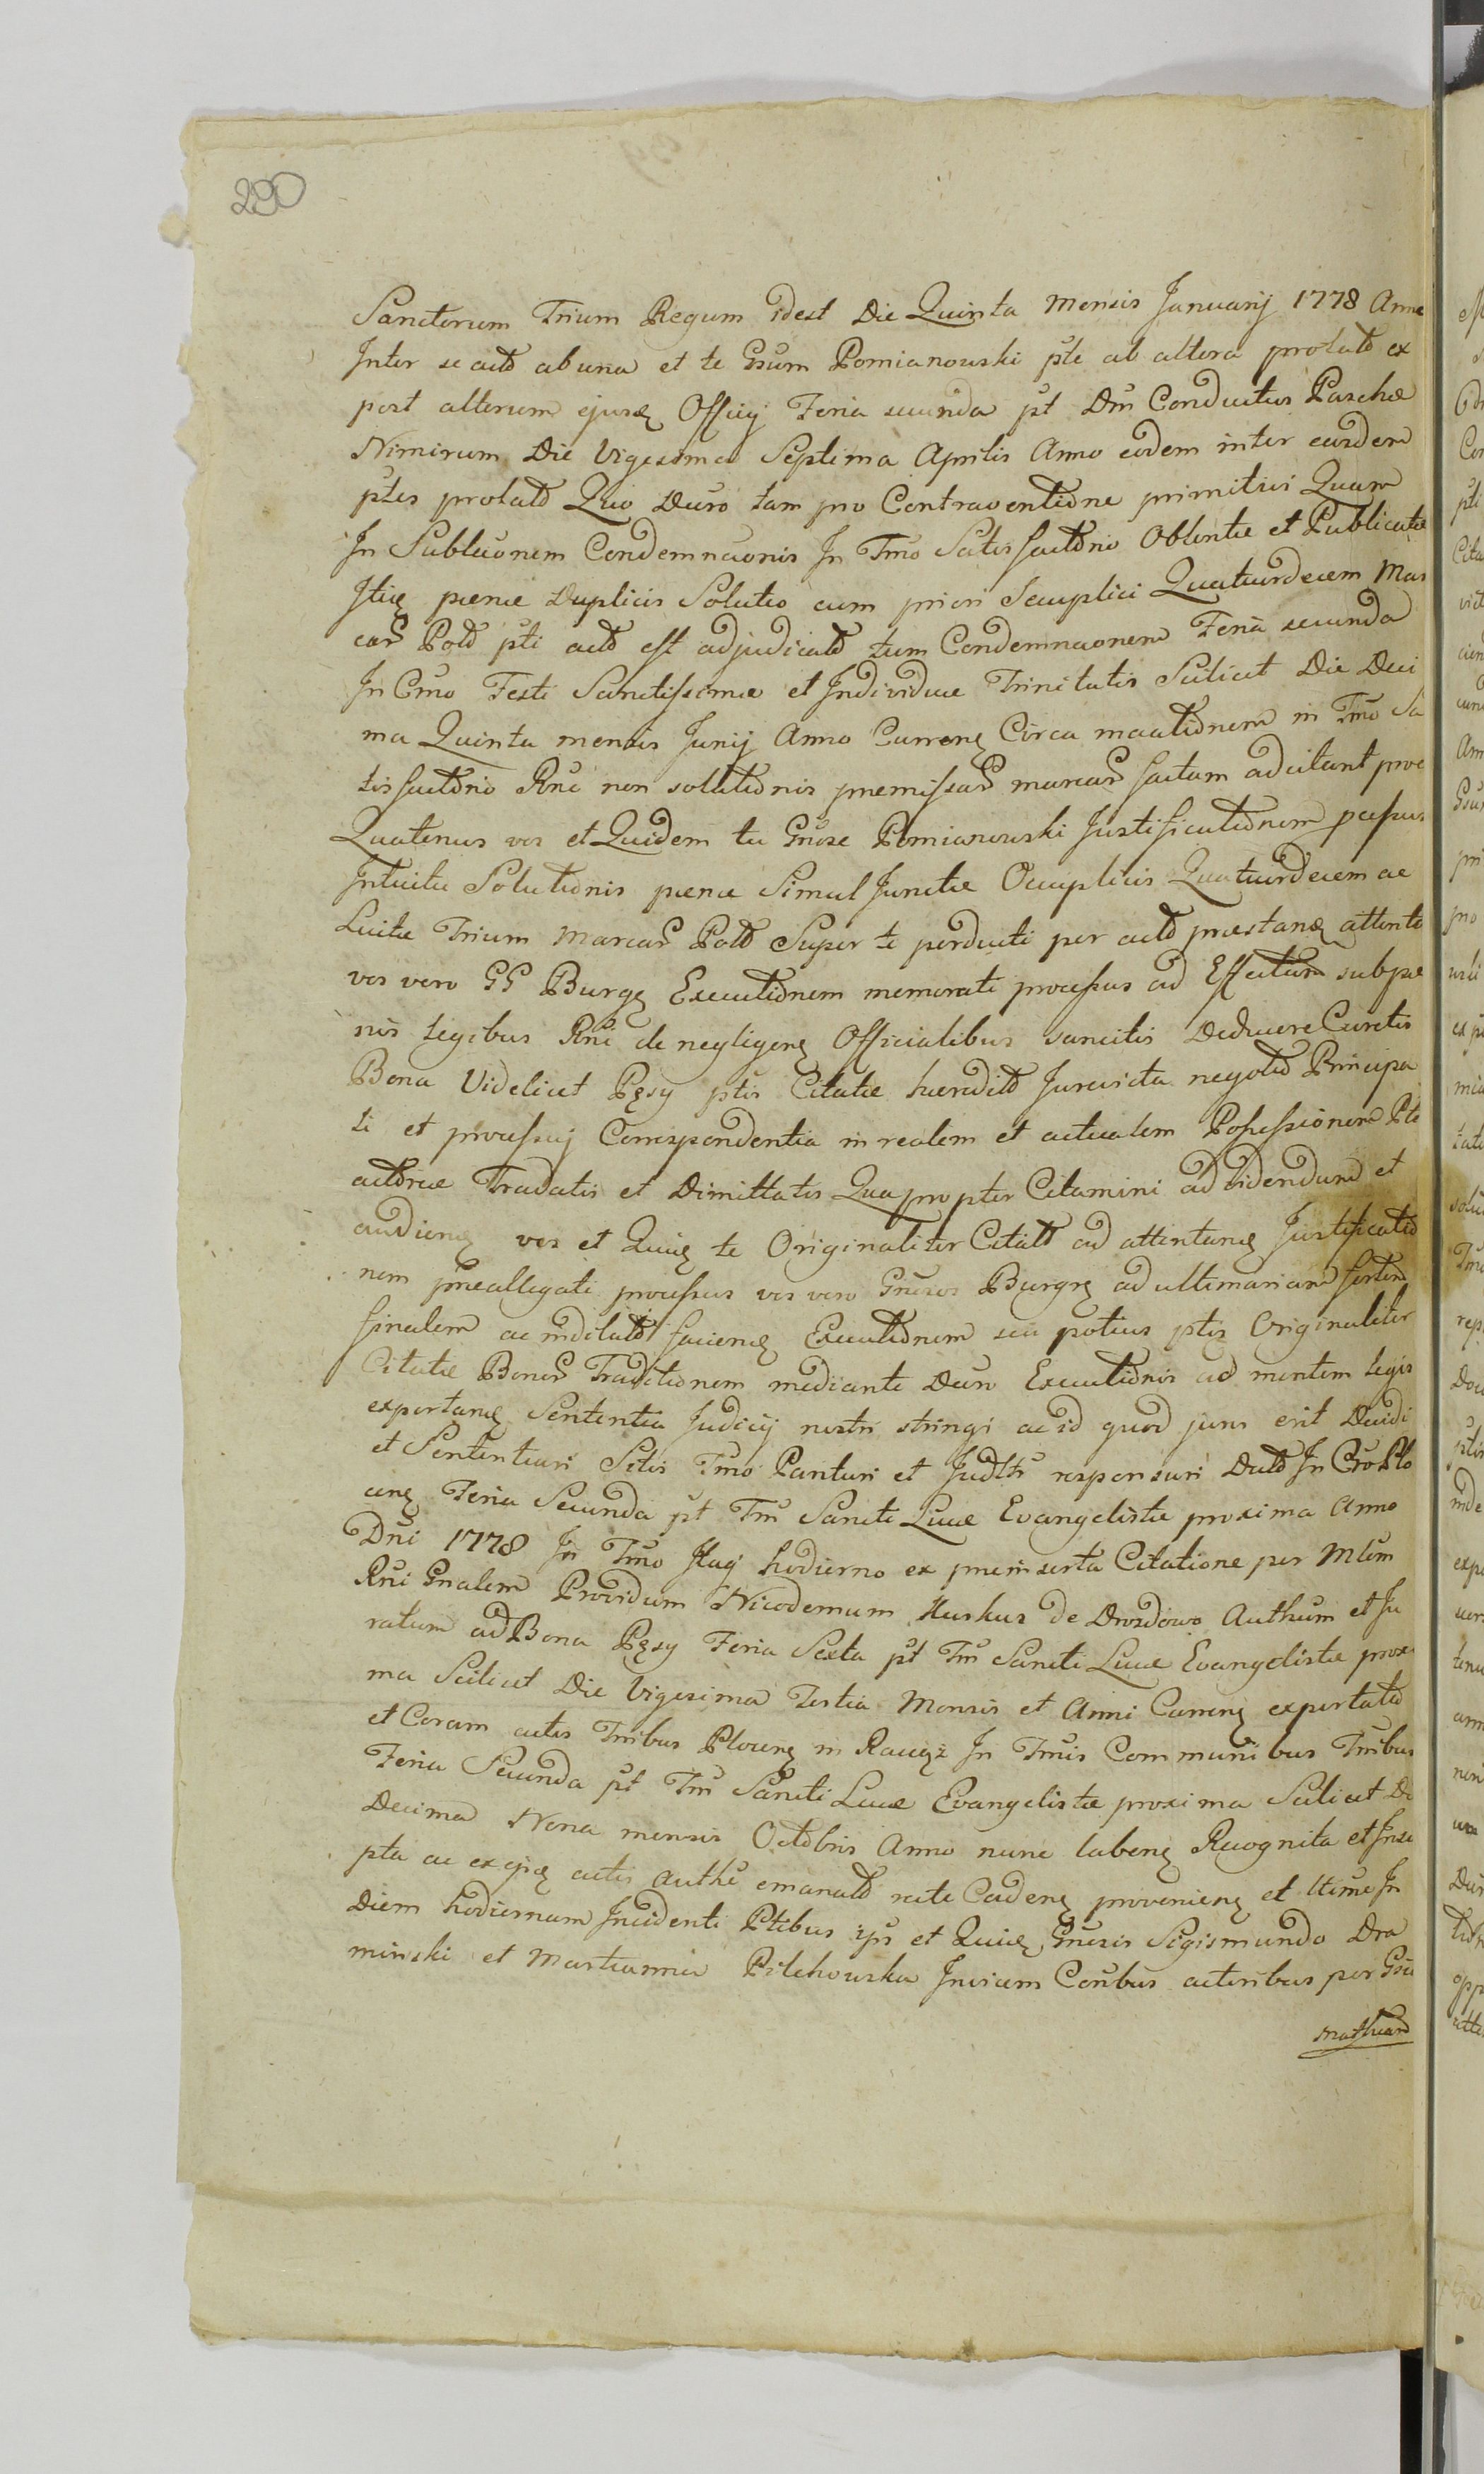 290
Sanctorum Trium Regum idest Die Quinta Mensis Januarij 1778 Anno
Inter se actd ab una et te Gsum Pomianowski pte ab altera prolatd ex
post alterum ejusq Officij Feria secunda pt Dm Conductus Paschæ
Nimirum Die Vigesima Septima Aprilis Anno eodem inter easdem
ptes prolatd Quo Duro tam pro Contraventione primitivi Quam
In Subluonem Condemnaonis In Tmo Satisfactorio Oblentæ et Publicatæ
Itiq penæ Duplicis Solutio cum priori Scuplici Quatuordecem Mar
car Pold pti actd est adjudicatd tum Condemnaonem Feria secunda
In Cmo Festi Sanctissimæ et Individuæ Trinitatis Scilicet Die Deci
ma Quinta mensis Junij Anno Curreng Circa maationem in Tmo Sa
tisfactorio Rni non solutionis premissar marcar factam adcitant proc
Quatenus vos et Quidem tu Gnose Pomianowski Justificationem processus
Intuitu Solutionis penæ Simul Junctæ Ocuplicis Quatuordecem ac
Luitæ Trium Marcar Pold Super te perducti per actd præstanq attente
vos vero GG Burgq Executionem memorati processus ad Effectum subpæ
nis legibus Rni de negligenq Officialibus sancitis Deducere Curetis
Bona Videlicet Pęsy ptis Citatæ hæreditd Jurevicta negotio Principa
li et processuj Correspondentia in realem et actualem Possessionem Pte
actoreæ Tradatis et Dimittatis Quapropter Citamini ad Videndum et
audienq vos et Quiq te Originaliter Citatd ad attentanq Justificatio
nem preallegati processus vos vero Gnosos Burgq ad ultimariam sortem
finalem ac indilatd facienq Executionem seu potius ptis Originaliter
Citatæ Bonor Traditionem mediante Duro Executionis ad mentem legis
exportanq Sententia Judicij nostri stringi ac id quod juris erit Decidi
et Sententiari Sitis Tmo Parituri et Judltr responsuri Datd In Cro Plo
cenq Feria Secunda pt Tm Sancti Lucæ Evangelistæ proxima Anno
Dni 1778 In Tmo Itaq hodierno ex preinserta Citatione per Mlum
Rni Gnalem Providum Nicodemum Kuskus de Drozdowo Authum et Ju
ratum ad Bona Pęsy Feria Sexta pt Tm Sancti Lucæ Evangelistæ prox
ma Scilicet Die Vigesima Tertia Mensis et Anni Currenq exportata
et Coram actis Tribus Plocenq in Raciąż In Tmis Communibus Tribus
Feria Secunda pt Tm Sancti Lucæ Evangelistæ proxima Scilicet Di
Decima Nona mensis Octobris Anno nunc labenq Recognita et Inscr
pta ac ex ejsq actis Authe emanatd rite Cadenq provenienq et ltime In
Diem hodiernum Incidenti Ptibus ips et Quiq Gnosis Sigismundo Dra
minski et Martianna Pilchowska Invicem Conbus actoribus per Gsu